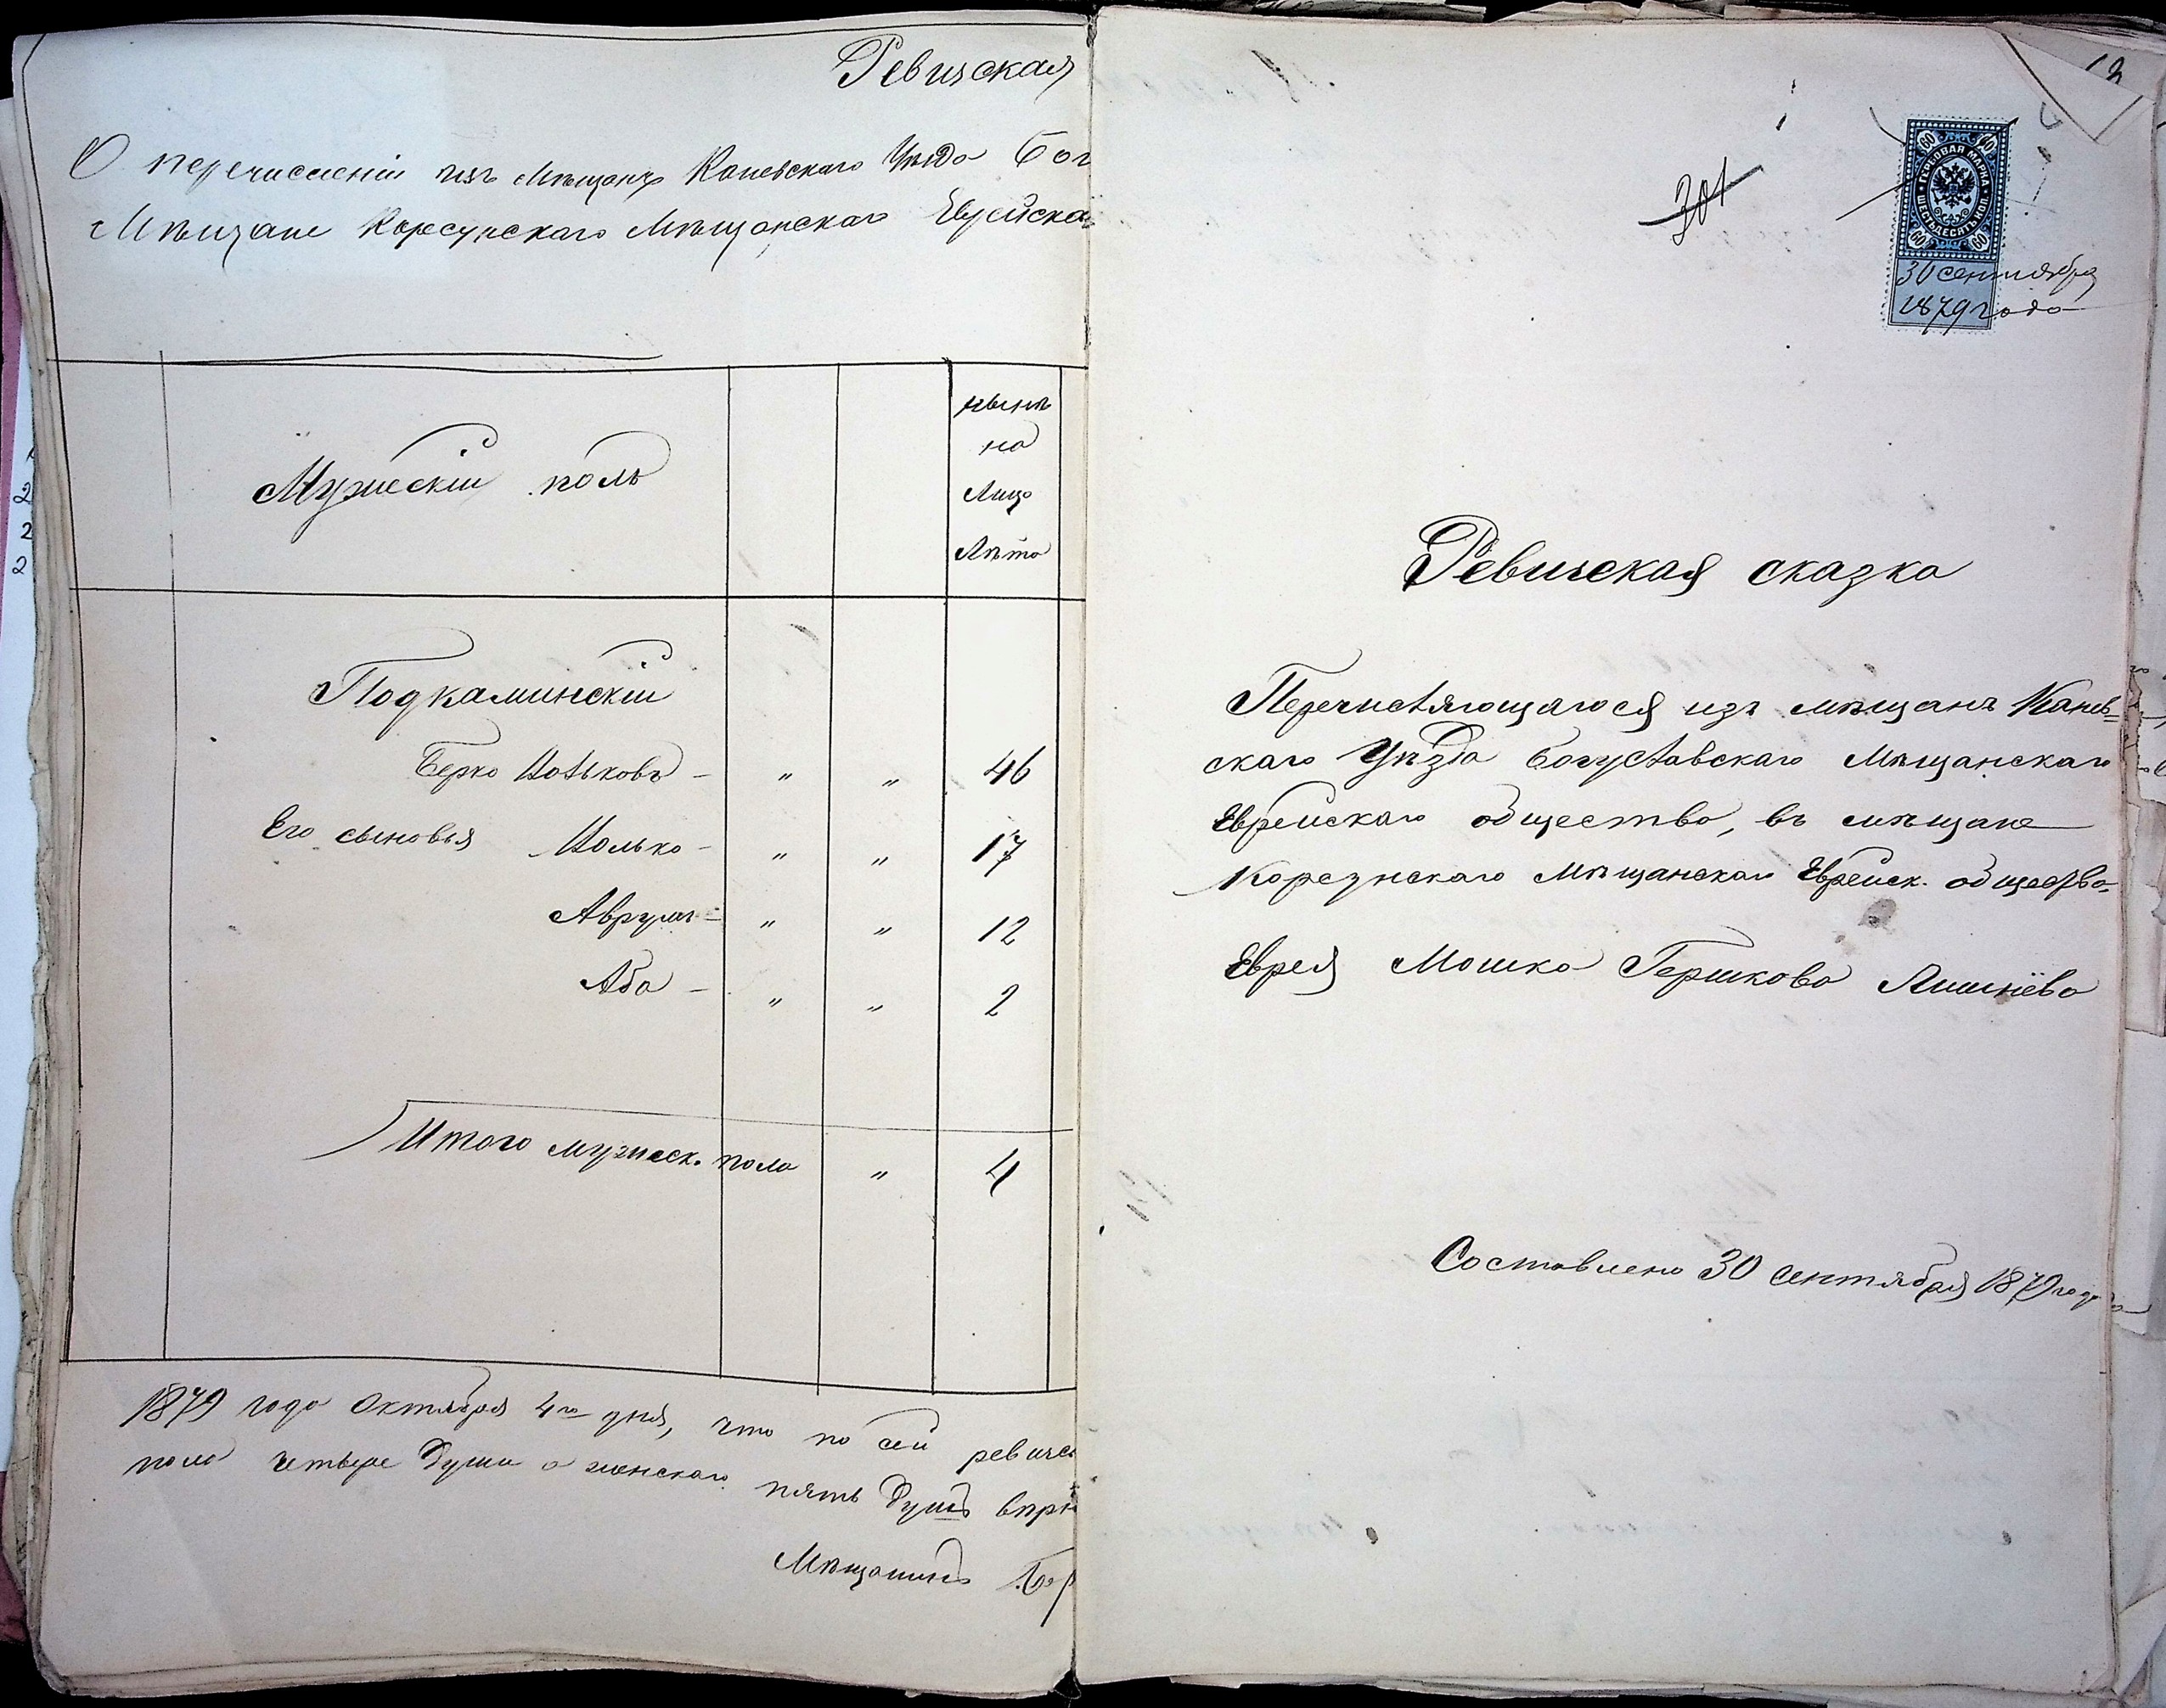 Ревизская
О перечисленіи изъ Мѣщанъ Каневскаго Уѣзда Бог
Мѣщане Корсунскаго Мѣщанскаго Еврейска
Мужескій полъ
нынѣ
на
Лицо
Лѣта
Подкаминскій
Берко Іольковъ - " " 46
Его сыновья Іолько - " " 17
Аврумъ - " " 12
Аба - " " 2
Итого мужеск. пола " 4
1879 года Октября 4го дня, что по сей ревизс
пола четыре души а женскаго пять душъ впрі
Мѣщанинъ Бер
12
301
60 60
ГЕРБОВАЯ МАРКА
ШЕСТЬДЕСЯТЪ КОП.
60 60
30 сентября
1879 года
Ревизская сказка
Перечисляющагося изъ мѣщанъ Канев=
скаго Уѣзда Богуславскаго Мѣщанскаго
Еврейскаго общества, въ мѣщане
Корсунскаго Мѣщанскаго Еврейск. общества
Еврея Мошка Гершкова
Составлено 30 сентября 1879 года